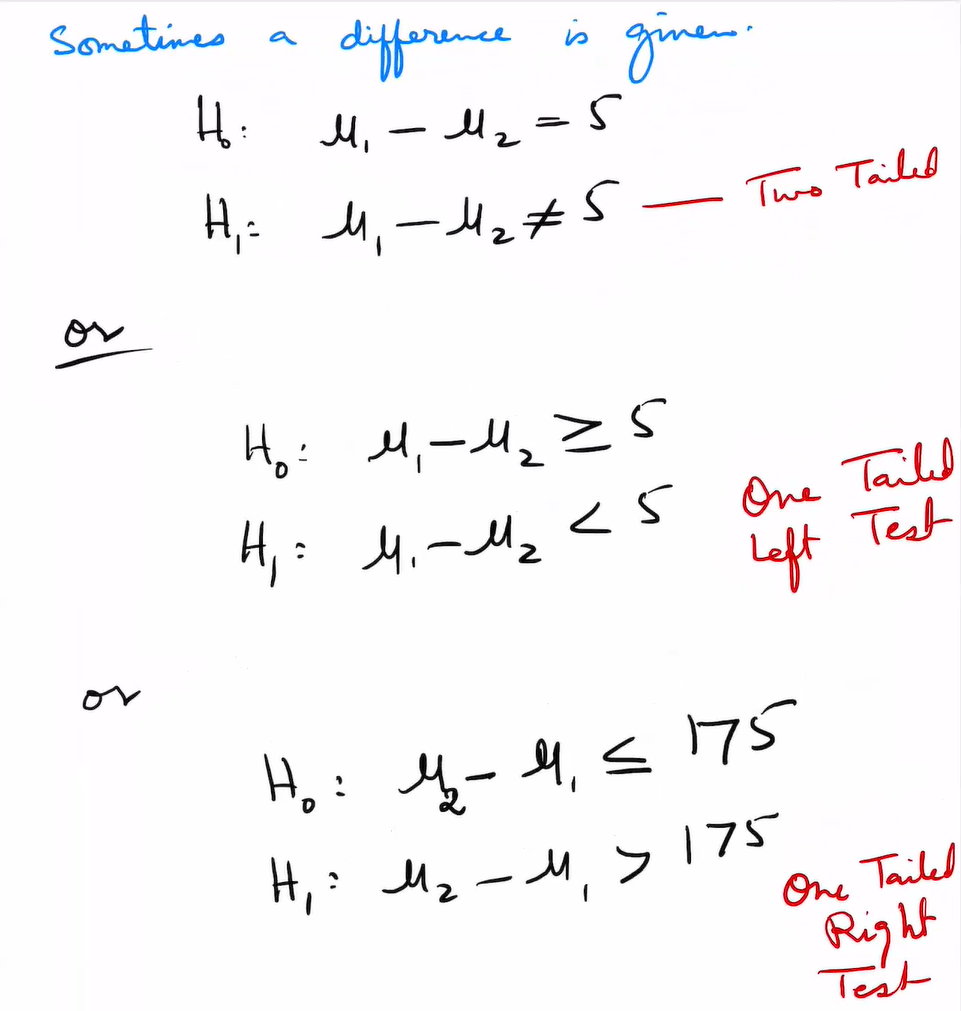 Sometimes a difference is given.
H₀: μ₁ − μ₂ = 5
H₁: μ₁ − μ₂ ≠ 5 — Two Tailed
or
H₀: μ₁ − μ₂ ≥ 5
H₁: μ₁ − μ₂ < 5
One Tailed
Left Test
or
H₀: μ₂ − μ₁ ≤ 175
H₁: μ₂ − μ₁ > 175
One Tailed
Right
Test